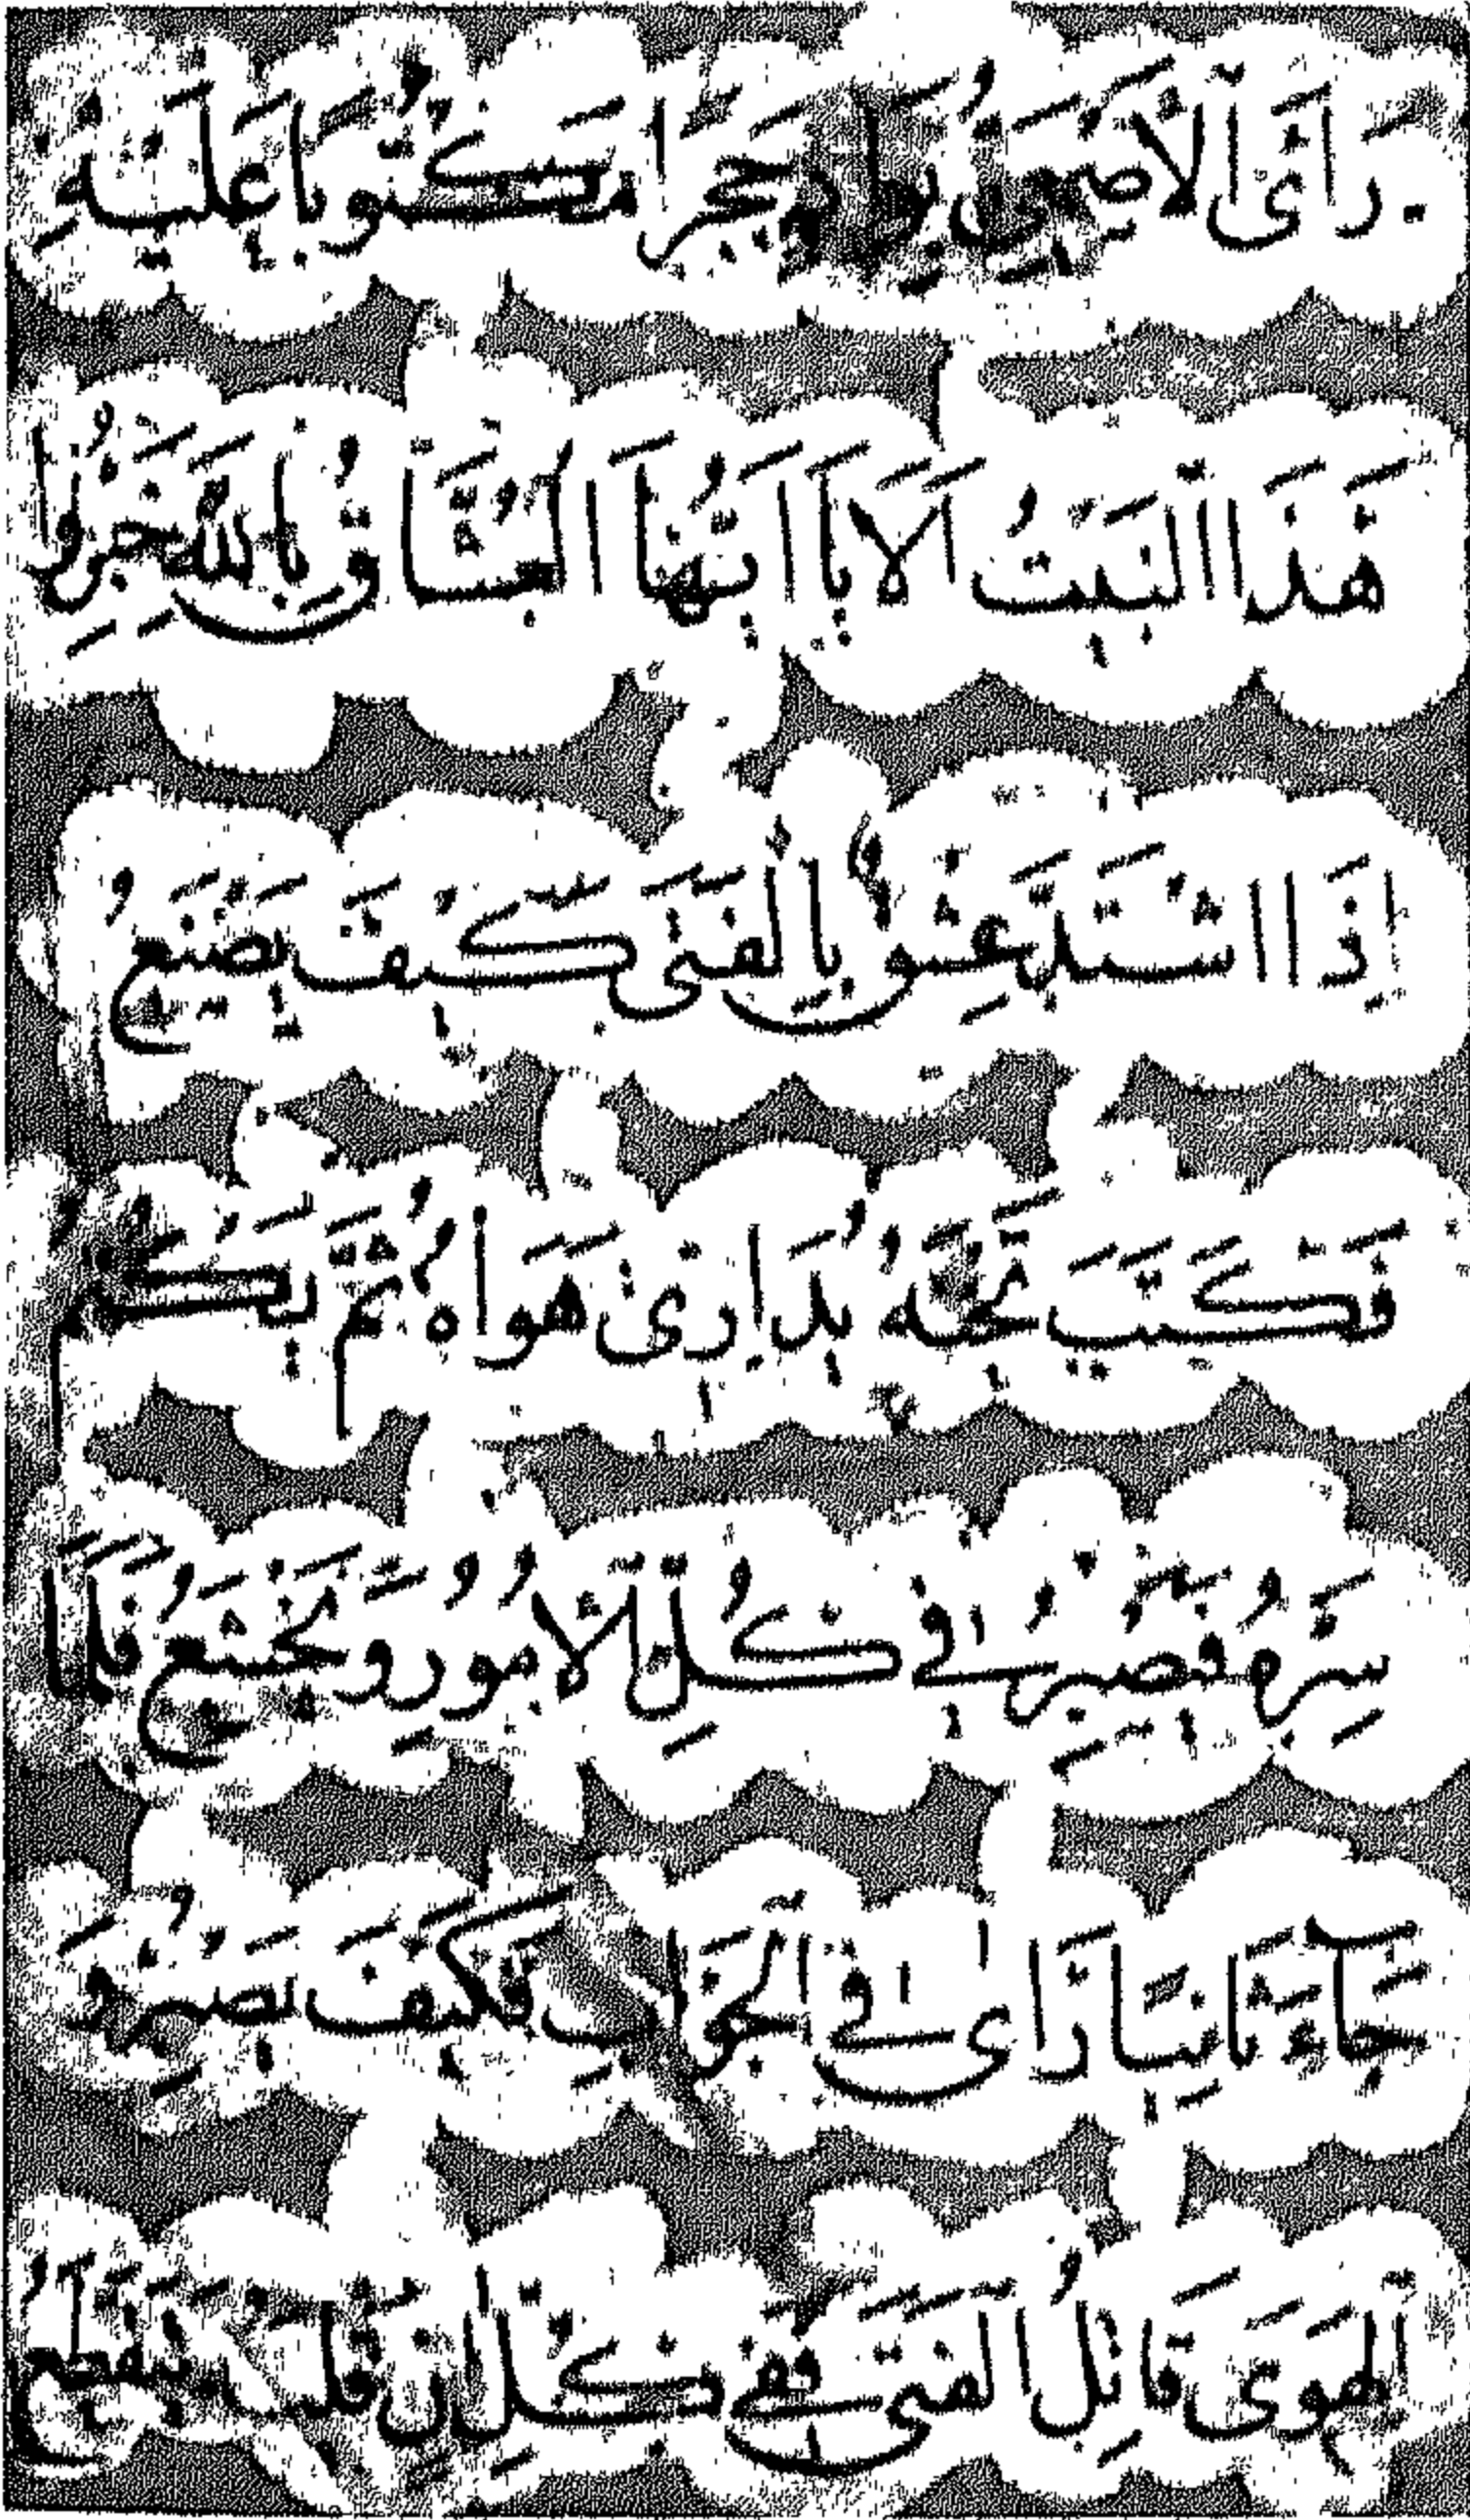 رَأَى الْأَصْمَعِيُّ بِوَادٍ حَجَرًا مَكْتُوبًا عَلَيْهِ
هَذَا الْبَيْتُ أَلَا يَا أَيُّهَا الْعُشَّاقُ بِاللَّهِ خَبِّرُوا
إِذَا اشْتَدَّ عِشْقٌ بِالْفَتَى كَيْفَ يَصْنَعُ
فَكَتَبَ تَحْتَهُ يُدَارِي هَوَاهُ ثُمَّ يَكْتُمُ
سِرَّهُ وَيَصْبِرُ فِي كُلِّ الْأُمُورِ وَيَخْشَعُ فَلَمَّا
جَاءَ ثَانِيًا رَأَى فِي الْجَوَابِ فَكَيْفَ يُدَارِي وَ
الْهَوَى قَاتِلُ الْفَتَى فَفِي كُلِّ آنٍ قَلْبُهُ يَتَقَطَّعُ